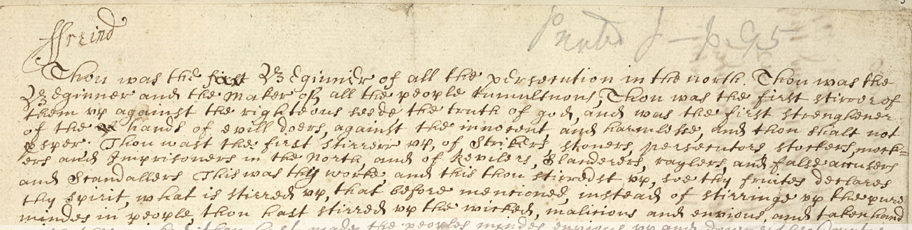 Printed J – p. 95
ffreind
Thou was the first Beginner of all the persecution in the north Thou was the
Beginner and the Maker of all the people tumultuous, Thou was the first stirrer of
them vp against the righteous seede the truth of god, and was the first strenghener
of the hands of evill doers, against the inocent and harmlesse, and thou shalt not
psper. Thou wast the first stirrer vp, of Strikers, stoners, persecutors stockers, mock-
ers and Imprisoners in the North, and of Revilers, Slanderers, raylers and false accusers
and Scandallers This was thy worke and this thou stirredst vp, soe thy fruites declares
thy spirit, what is stirred vp, that before mentioned, instead of stirringe vp the pure
mindes in people thou hast stirred vp the wicked, malitious and envious, and taken hand
hast made the peoples mindes envious vp and downe the Countr